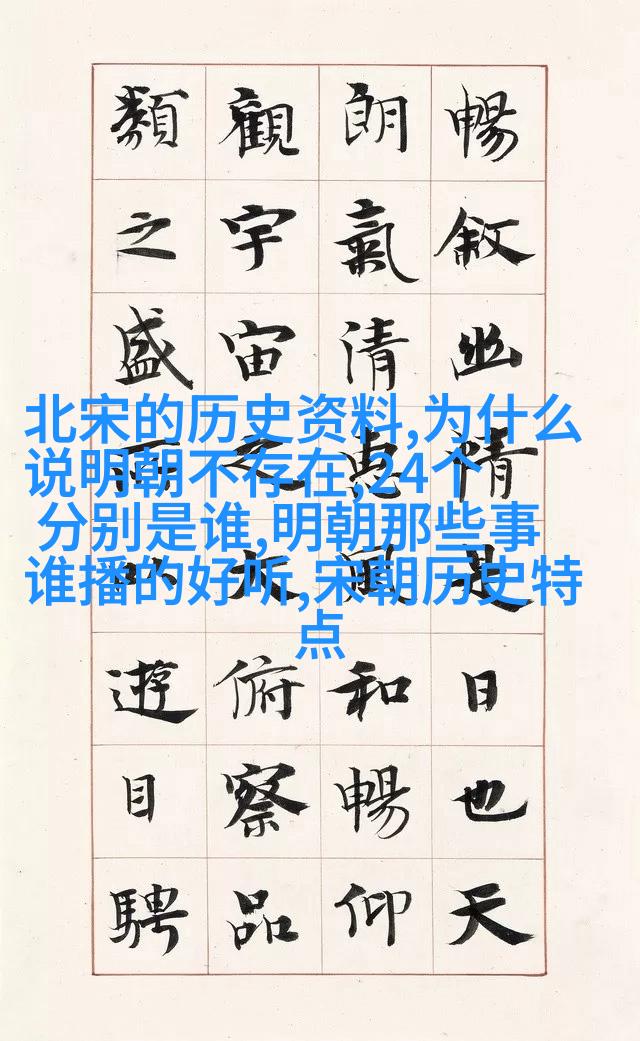 暢敘幽情是日也天
朗氣清惠風和暢仰
觀宇宙之大俯察品
類之盛所以遊目騁
北宋的历史资料,为什么
说明朝不存在,24个
分别是谁,明朝那些事
谁播的好听,宋朝历史特
点